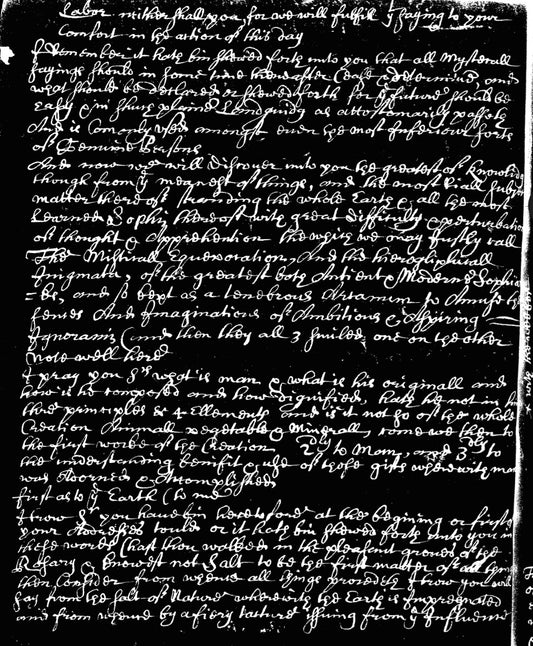 Labor neither shall you, for we will fulfill yᵉ saying to your
Comfort in the action of this day
I Remember it hath bin shewed forth unto you that all Mysticall
sayings should in some time thereafter Cease & determine, and
what should be declared or shewed forth for yᵉ future should be
easy & in shuch plaine Landguidg as accostomarily passeth
And is Comonly used amongst even the most Inferiour sorts
of Feminine Persons
And now we will discover unto you the greatest of knowlidg
though from yᵉ meanest of things, and the most Viall subject
matter there of standing the whole Earth & all the most
Learned Sophis thereof with great difficulty & perturbation
of thought & Apprehention the which we may justly call
The Misticall Equexoration, And his hierogliphicall
Inigmata, of the greatest both Antient & Modern Sophis
and so kept as a tenebrous Arcanum to Amuse the
senses And Imaginations of Ambitious & Aspiring
Ignorams (and then they all 3 smiled, one on the other
note well here
I pray you Sʳ what is man & what is his originall and
how is he composed and how dignified, hath he not in him
three principles & 4 Ellements and is it not so of the whole
Creation Animall vegetable & Minerall, come we then to
the first worke of the Creation 2dly to Man, and 3dly to
the understanding benifit & use of those gifts wherewith man
was Adorned & Accomplished
first as to yᵉ Earth (to me
I know Sʳ you have bin heretofore at the begining or first
your Addresses tould or it hath bin shewed forth unto you in
these words (hast thou walked in the pleasant groves of the
Rosary & knewest not Salt to be the first matter of all things
then Consider from whence all things proceed I know you will
say from the salt of Nature wherewith the Earth is Impregnated
and from whence by a fiery tartar Issuing from yᵉ Influence